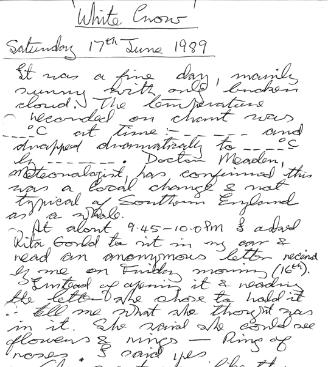 'White Crow'
Saturday 17th June 1989
It was a fine day, mainly
sunny with only broken
cloud. The temperature
recorded on chart was
_ _ _ °C at time :- _ _ _ and
dropped dramatically to _ _ _ °C
by _ _ _ _ _ _. Doctor Meaden,
meteorologist, has confirmed this
was a local change & not
typical of Southern England
as a whole.
At about 9.45-10.0PM I asked
Rita Gould to sit in my car &
read an anonymous letter received
by me on Friday morning (16th).
Instead of opening it & reading
the letter she chose to hold it
& tell me what she thought was
in it. She said she could see
flowers & rings — Ring of
roses. I said yes.